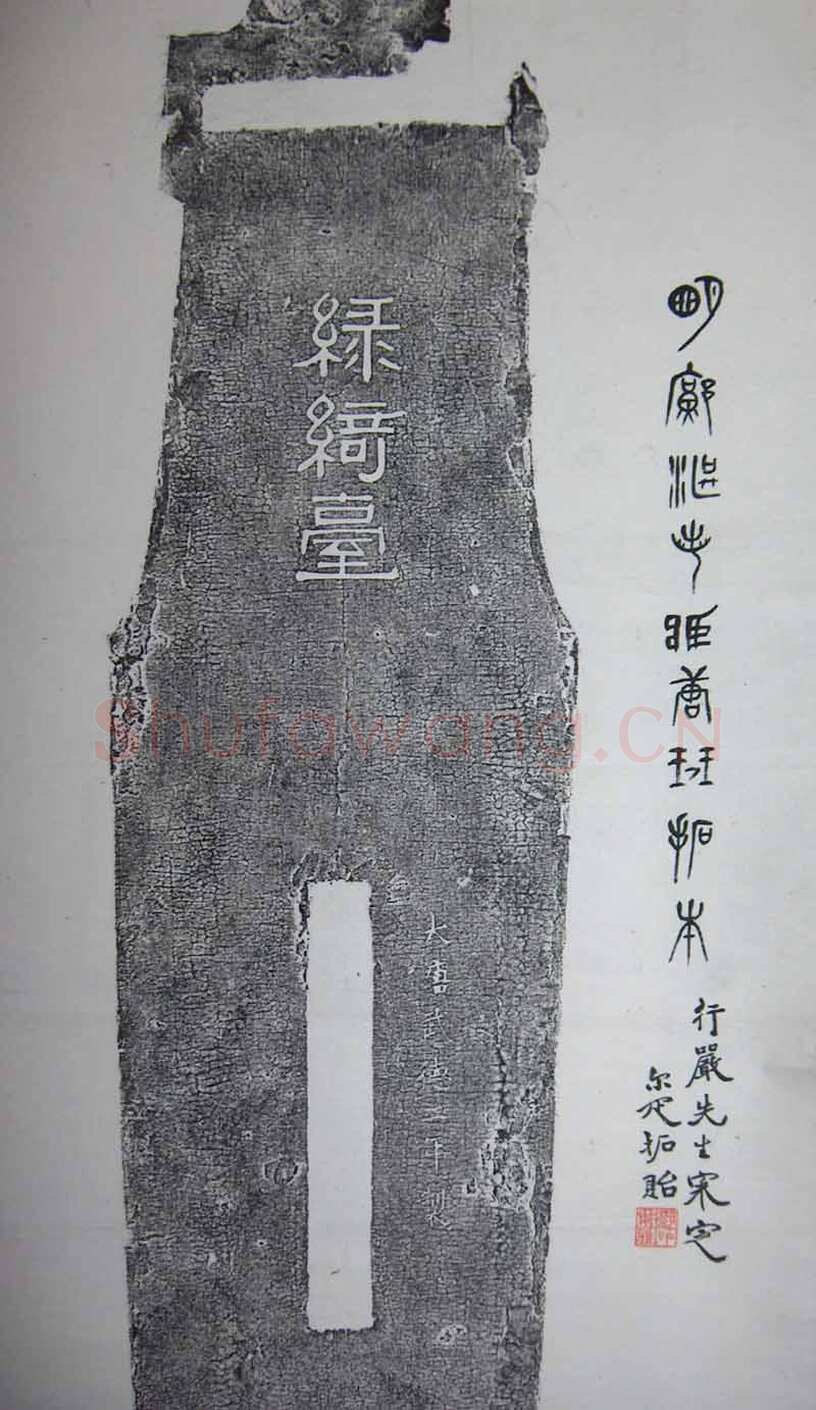 明鄺湛若臧唐琹拓本
行嚴先生宷定
尔疋拓貽
綠綺臺
大唐武德二年製
Shufawang.CN